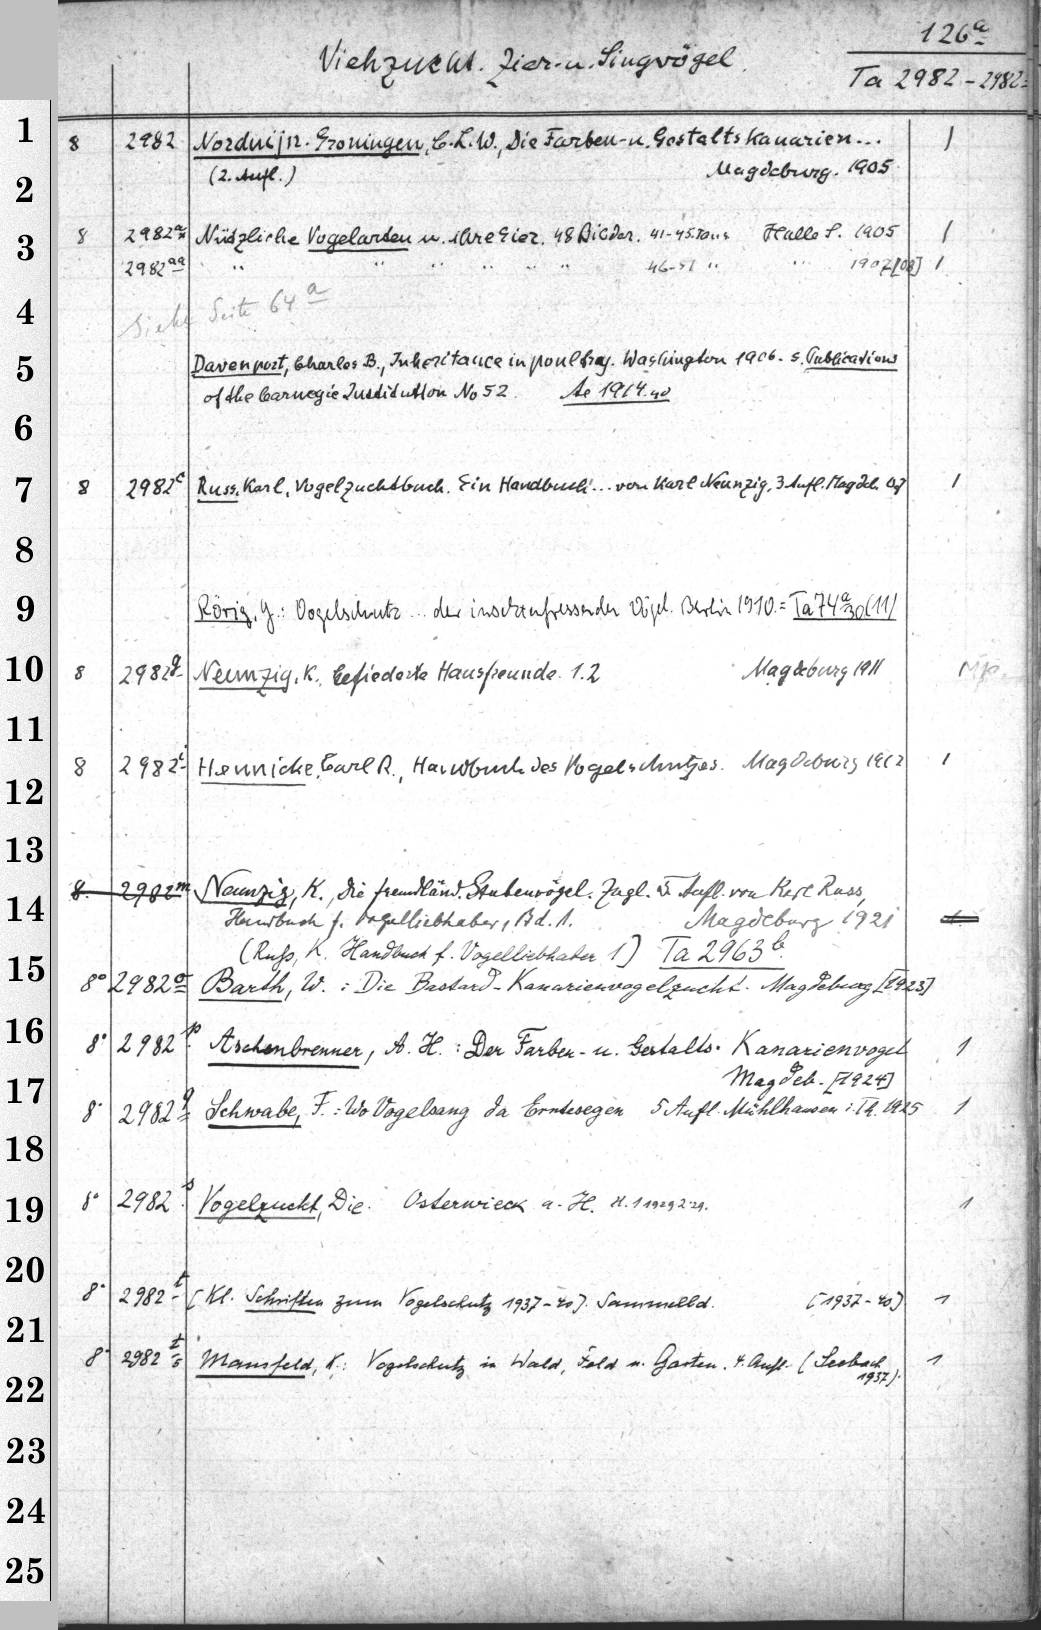 126a
Viehzucht. Zier- u. Singvögel.
Ta 2982 - 2982
1 8 2982 Norduijn-Groningen, C. L. W., Die Farben- u. Gestaltskanarien... 1
2 (2. Aufl.) Magdeburg. 1905
3 8 2982a Nützliche Vogelarten u. ihre Eier. 48 Bilder. 41-45 Taus Halle S. 1905 1
2982aa " " " " " " 46-51 " " 1907[08] 1
4 Siehe Seite 64a
5 Davenport, Charles B., Inheritance in poultry. Washington 1906. s. Publications
of the Carnegie Institution No 52. Ae 1914.40
6
7 8 2982c Russ, Karl, Vogelzuchtbuch. Ein Handbuch... von Karl Neunzig. 3 Aufl. Magdeb. 07 1
8
9 Rörig, G.: Vogelschutz ... der insektenfressenden Vögel. Berlin 1910. = Ta 74a/30 (11)
10 8 2982g Neunzig, K., Gefiederte Hausfreunde. 1.2 Magdeburg 1911
11
12 8 2982i Hennicke, Carl R., Handbuch des Vogelschutzes. Magdeburg 1912 1
13
14 8. 2982m Neunzig, K., Die fremdländ. Stubenvögel. Zugl. 5 Aufl. von Karl Russ,
Handbuch f. Vogelliebhaber, Bd. 1. Magdeburg 1921 1.
(Russ, K. Handbuch f. Vogelliebhaber 1) Ta 2963b.
15 8° 2982o Barth, W.: Die Bastard-Kanarienvogelzucht. Magdeburg [1923]
16 8° 2982p Aschenbrenner, A. H.: Der Farben- u. Gestalts-Kanarienvogel 1
Magdeb. [1924]
17 8° 2982q Schwabe, F.: Wo Vogelsang da Erntesegen 5 Aufl. Mühlhausen i. Th. 1925 1
18
19 8° 2982s Vogelzucht, Die. Osterwieck a. H. H. 1 1929 2 29. 1
20
8° 2982t [Kl. Schriften zum Vogelschutz 1937-40]. Sammelbd. [1937-40] 1
21
8° 2982t/5 Mansfeld, K.: Vogelschutz in Wald, Feld u. Garten. 4. Aufl. (Seebach 1
22 1937).
23
24
25